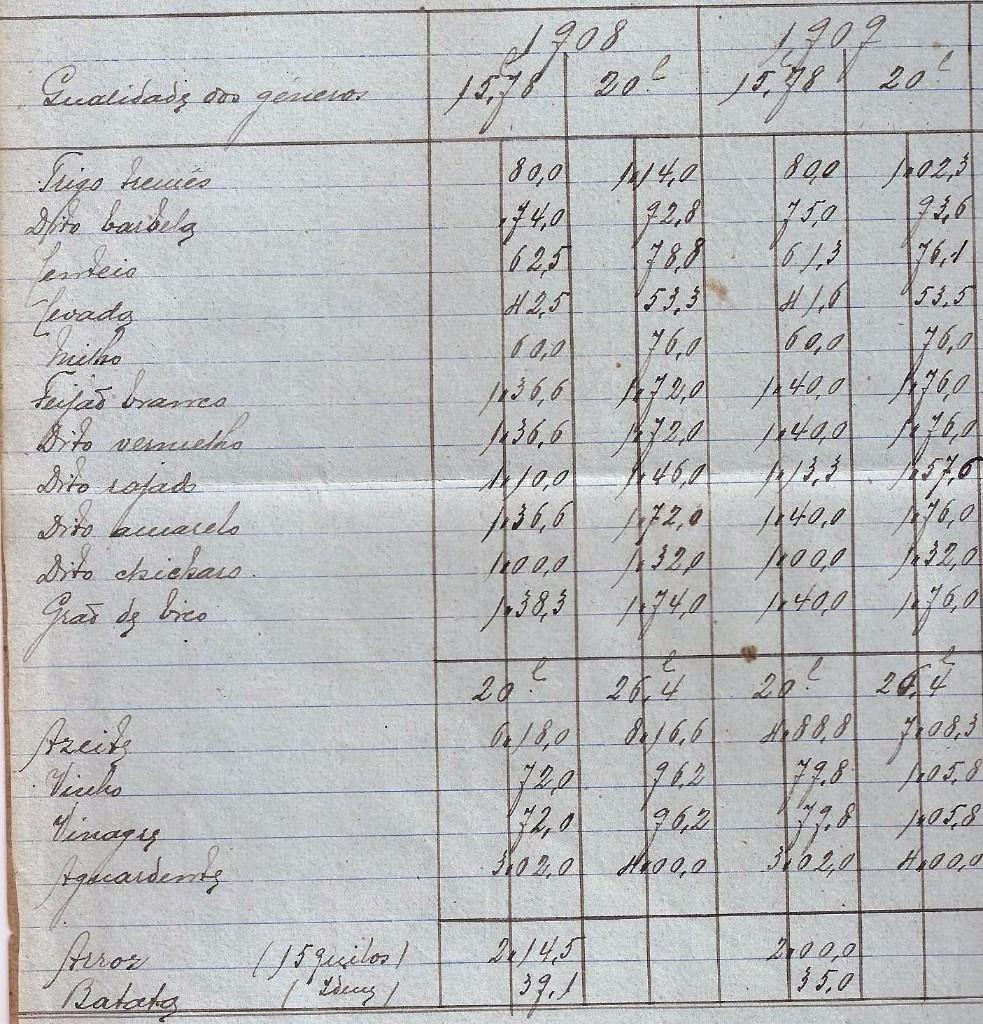 1908 1909
Qualidade dos géneros 15,78 l 20 l 15,78 l 20 l
Trigo tremês 80,0 1.14,0 80,0 1.02,3
Dito barbela 74,0 92,8 75,0 93,6
Centeio 62,5 78,8 61,3 76,1
Cevada 42,5 53,3 41,6 53,5
Milho 60,0 76,0 60,0 76,0
Feijão branco 1.36,6 1.72,0 1.40,0 1.76,0
Dito vermelho 1.36,6 1.72,0 1.40,0 1.76,0
Dito rajado 1.10,0 1.46,0 1.13,3 1.57,6
Dito amarelo 1.36,6 1.72,0 1.40,0 1.76,0
Dito chicharo 1.00,0 1.32,0 1.00,0 1.32,0
Grão de bico 1.38,3 1.74,0 1.40,0 1.76,0
20 l 26,4 l 20 l 26,4 l
Azeite 6.18,0 8.16,6 4.88,8 7.08,3
Vinho 72,0 96,2 79,8 1.05,8
Vinagre 72,0 96,2 79,8 1.05,8
Aguardente 3.02,0 4.00,0 3.02,0 4.00,0
Arroz (15 quilos) 2.14,5 2.00,0
Batata (Idem) 39,1 35,0